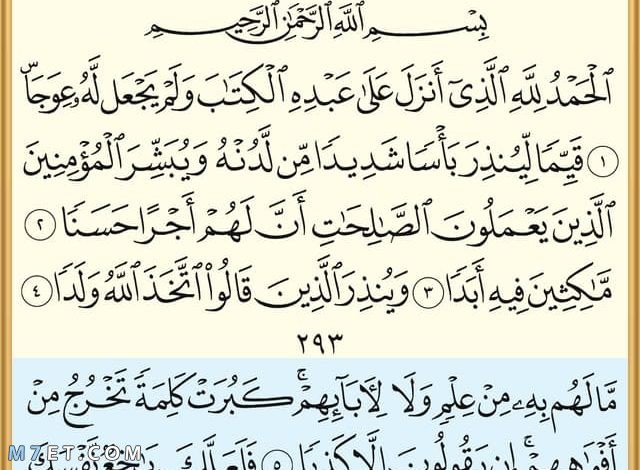 بِسْمِ ٱللَّهِ ٱلرَّحْمَٰنِ ٱلرَّحِيمِ
ٱلْحَمْدُ لِلَّهِ ٱلَّذِىٓ أَنزَلَ عَلَىٰ عَبْدِهِ ٱلْكِتَٰبَ وَلَمْ يَجْعَل لَّهُۥ عِوَجَاۜ
١ قَيِّمًا لِّيُنذِرَ بَأْسًا شَدِيدًا مِّن لَّدُنْهُ وَيُبَشِّرَ ٱلْمُؤْمِنِينَ
ٱلَّذِينَ يَعْمَلُونَ ٱلصَّٰلِحَٰتِ أَنَّ لَهُمْ أَجْرًا حَسَنًا ٢
مَّٰكِثِينَ فِيهِ أَبَدًا ٣ وَيُنذِرَ ٱلَّذِينَ قَالُوا۟ ٱتَّخَذَ ٱللَّهُ وَلَدًا ٤
٢٩٣
مَّا لَهُم بِهِۦ مِنْ عِلْمٍ وَلَا لِـَٔابَآئِهِمْ ۚ كَبُرَتْ كَلِمَةً تَخْرُجُ مِنْ
أَفْوَٰهِهِمْ ۚ إِن يَقُولُونَ إِلَّا كَذِبًا ٥ فَلَعَلَّكَ بَٰخِعٌ نَّفْسَكَ
M7ET.COM